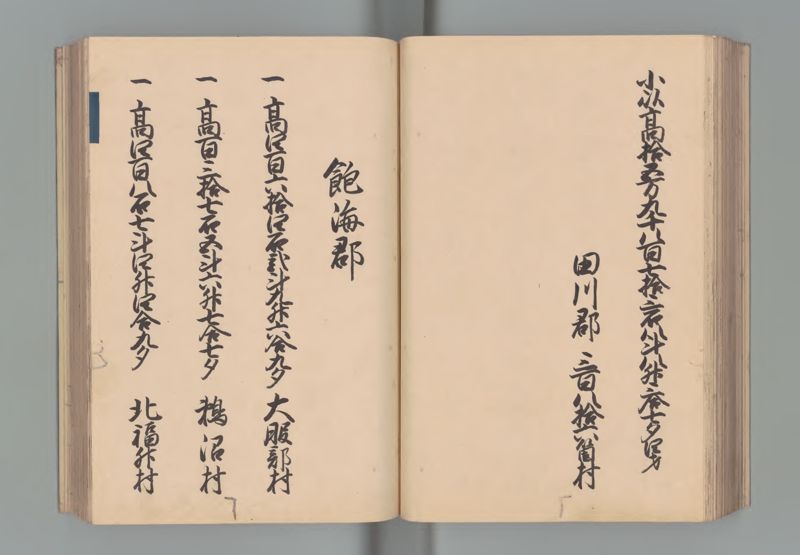 小以高拾五万九千八百七拾三石八斗八升三合七夕四才
田川郡 三百八拾六箇村
飽海郡
一 高四百六拾四石弐斗九升六合九夕 大服部村
一 高百三拾七石五斗六升七合七夕 鵜沼村
一 高四百八石七斗四升四合九夕 北福升村